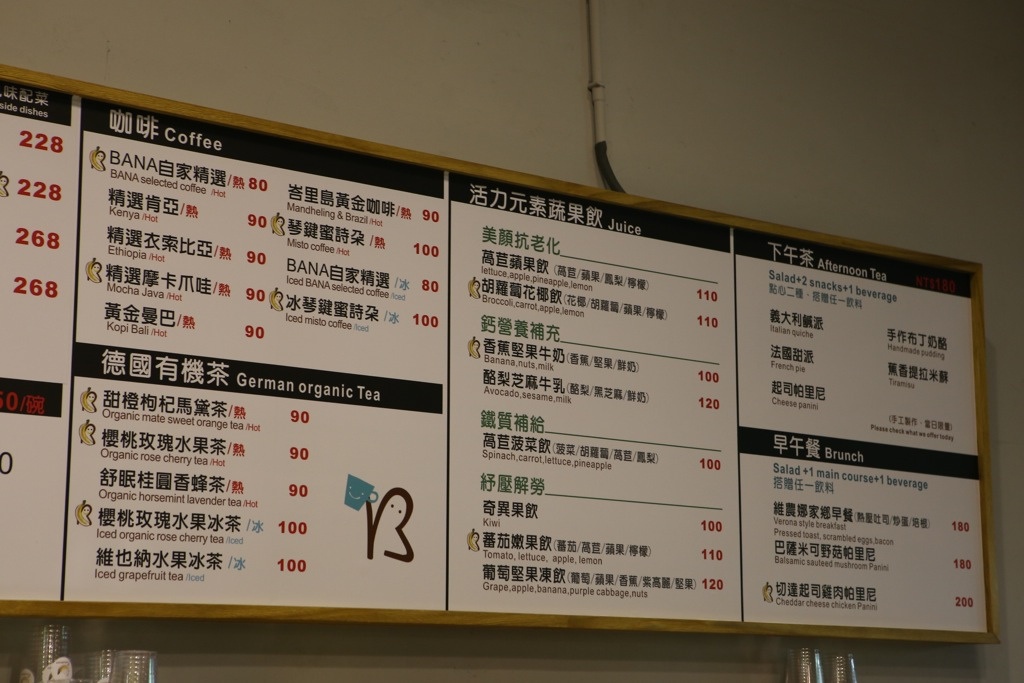 味配菜
side dishes
228
228
268
268
50/碗
0
咖啡 Coffee
BANA自家精選/熱 80
BANA selected coffee /Hot
精選肯亞/熱 90
Kenya /Hot
精選衣索比亞/熱 90
Ethiopia /Hot
精選摩卡爪哇/熱 90
Mocha Java /Hot
黃金曼巴/熱 90
Kopi Bali /Hot
峇里島黃金咖啡/熱 90
Mandheling & Brazil /Hot
琴鍵蜜詩朶/熱 100
Misto coffee /Hot
BANA自家精選/冰 80
Iced BANA selected coffee /Iced
冰琴鍵蜜詩朶/冰 100
Iced misto coffee /Iced
德國有機茶 German organic Tea
甜橙枸杞馬黛茶/熱 90
Organic mate sweet orange tea /Hot
櫻桃玫瑰水果茶/熱 90
Organic rose cherry tea /Hot
舒眠桂圓香蜂茶/熱 90
Organic horsemint lavender tea /Hot
櫻桃玫瑰水果冰茶/冰 100
Iced organic rose cherry tea /Iced
維也納水果冰茶/冰 100
Iced grapefruit tea /Iced
B
活力元素蔬果飲 Juice
美顏抗老化
萵苣蘋果飲(萵苣/蘋果/鳳梨/檸檬) 110
lettuce,apple,pineapple,lemon
胡蘿蔔花椰飲(花椰/胡蘿蔔/蘋果/檸檬) 110
Broccoli,carrot,apple,lemon
鈣營養補充
香蕉堅果牛奶(香蕉/堅果/鮮奶) 100
Banana,nuts,milk
酪梨芝麻牛乳(酪梨/黑芝麻/鮮奶) 120
Avocado,sesame,milk
鐵質補給
萵苣菠菜飲(菠菜/胡蘿蔔/萵苣/鳳梨) 100
Spinach,carrot,lettuce,pineapple
紓壓解勞
奇異果飲 100
Kiwi
蕃茄嫩果飲(蕃茄/萵苣/蘋果/檸檬) 110
Tomato, lettuce, apple, lemon
葡萄堅果凍飲(葡萄/蘋果/香蕉/紫高麗/堅果) 120
Grape,apple,banana,purple cabbage,nuts
下午茶 Afternoon Tea NT$180
Salad+2 snacks+1 beverage
點心二種、搭贈任一飲料
義大利鹹派
Italian quiche
法國甜派
French pie
起司帕里尼
Cheese panini
手作布丁奶酪
Handmade pudding
蕉香提拉米蘇
Tiramisu
(手工製作，當日限量)
Please check what we offer today
早午餐 Brunch
Salad +1 main course+1 beverage
搭贈任一飲料
維農娜家鄉早餐(熱壓吐司/炒蛋/培根) 180
Verona style breakfast
Pressed toast, scrambled eggs,bacon
巴薩米可野菇帕里尼 180
Balsamic sauteed mushroom Panini
切達起司雞肉帕里尼 200
Cheddar cheese chicken Panini